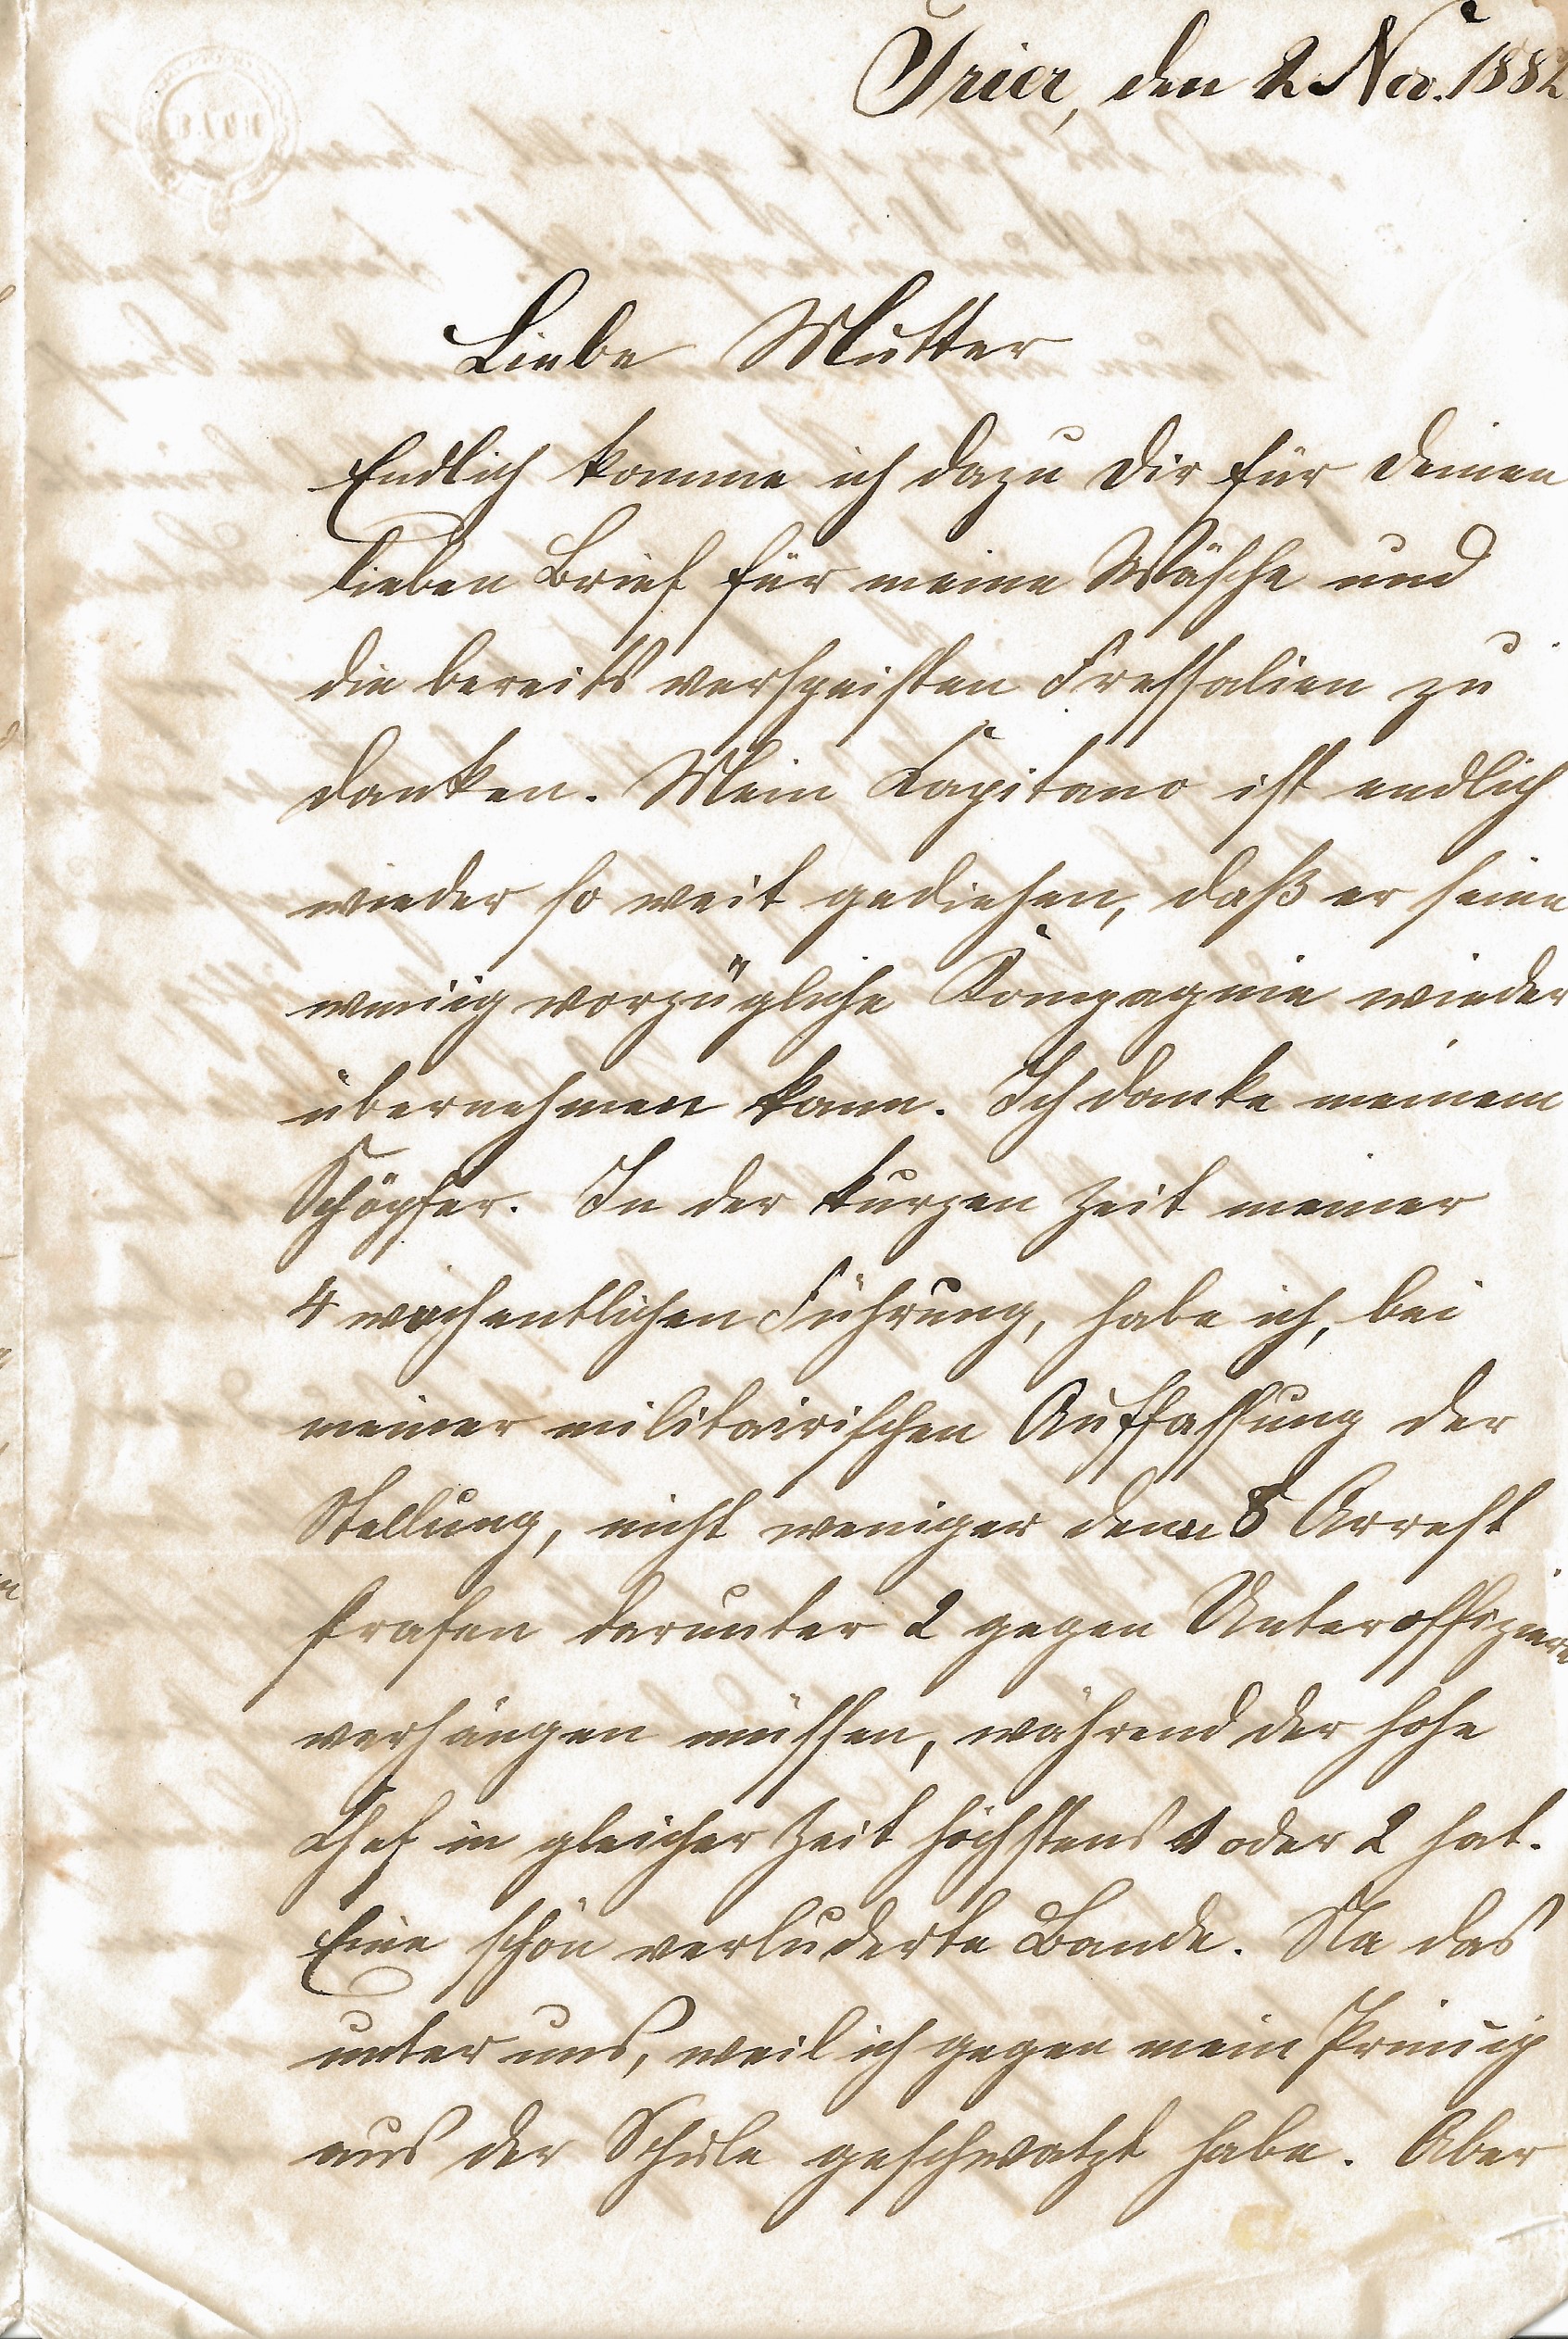 Trier, den 2 Nov. 1882
BATH
Liebe Mutter
Endlich komme ich dazu Dir für Deinen
lieben Brief für meine Wäsche und
die bereits verspeisten Fressalien zu
danken. Mein Kapitano ist endlich
wieder so weit gediehen, daß er seine
vorzügliche Kompagnie wieder
übernehmen kann. Ich danke meinem
Schöpfer. In der kurzen Zeit meiner
4 wöchentlichen Führung, habe ich, bei
meiner militairischen Auffassung der
Stellung, nicht weniger denn 8 Arrest
strafen darunter 2 gegen Unteroffiziere
verhängen müssen, während der hohe
Chef in gleicher Zeit höchstens 1 oder 2 hat.
Eine schön verluderte Bande. Na das
unter uns, weil ich gegen mein Prinzip
aus der Schule geschwatzt habe. Aber